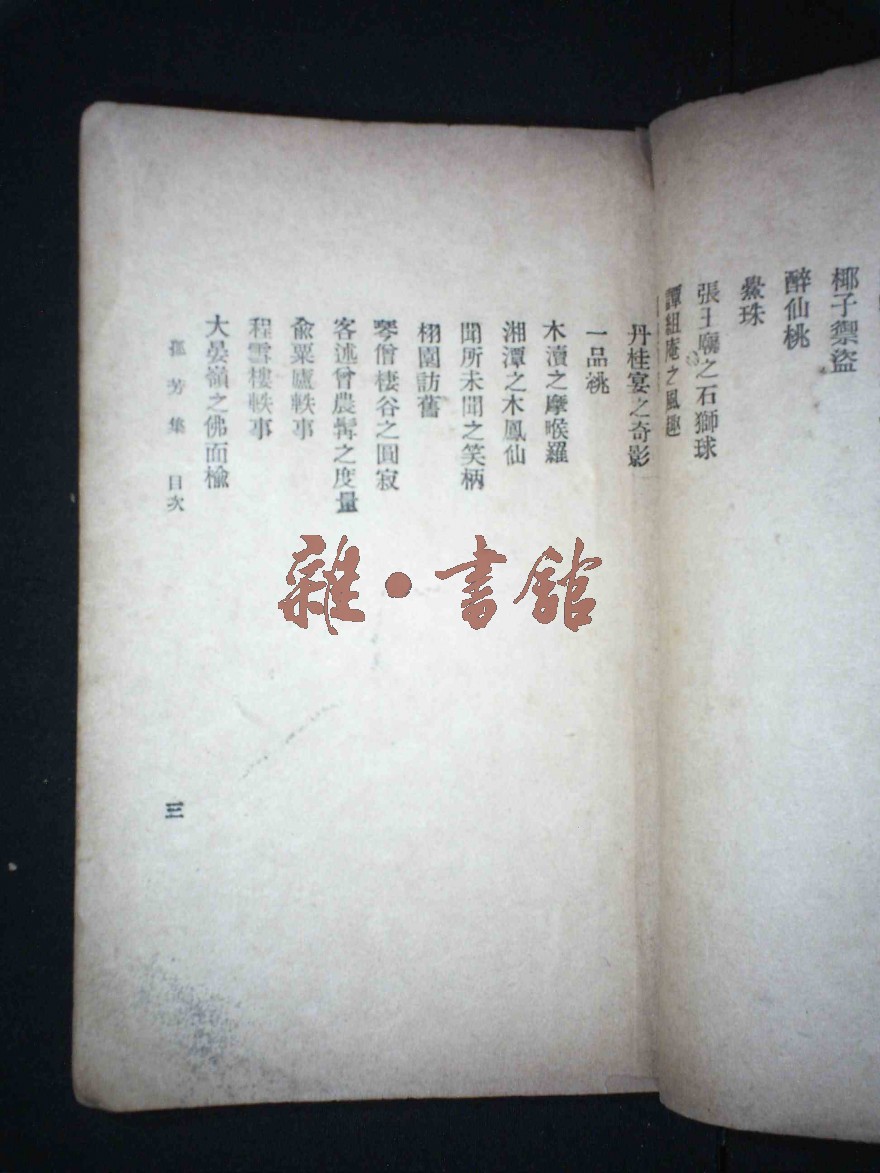 椰子禦盜
醉仙桃
鱟珠
張王廟之石獅球
譚組庵之風趣
丹桂宴之奇影
一品祧
木瀆之摩喉羅
湘潭之木鳳仙
聞所未聞之笑柄
栩園訪舊
琴僧棲谷之圓寂
客述曾農髯之度量
兪粟廬軼事
程雪樓軼事
大晏嶺之佛面楡
孤芳集 目次
三
雜·書館